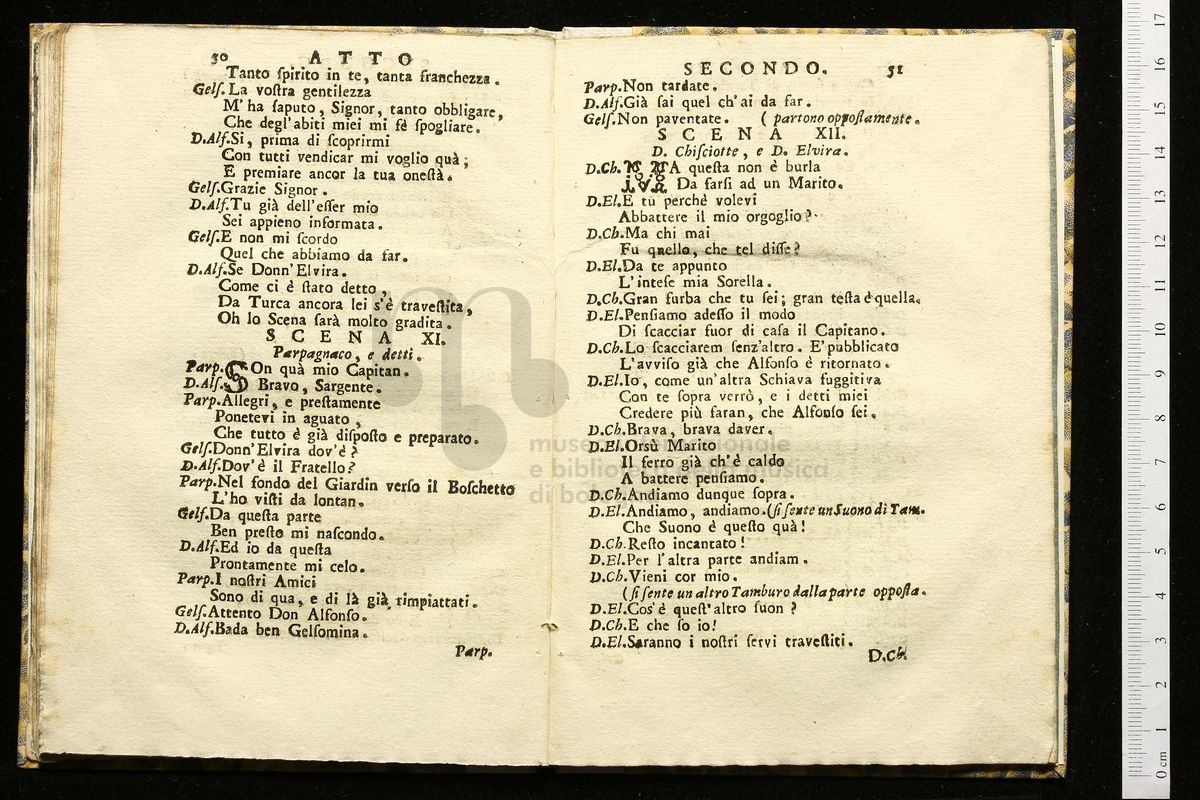 50 ATTO
Tanto ſpirito in te, tanta franchezza.
Gelſ. La voſtra gentilezza
M' ha ſaputo, Signor, tanto obbligare,
Che degl'abiti miei mi fè ſpogliare.
D.Alf. Si, prima di ſcoprirmi
Con tutti vendicar mi voglio quà;
E premiare ancor la tua oneſtà.
Gelſ. Grazie Signor.
D.Alf. Tu già dell'eſſer mio
Sei appieno informata.
Gelſ. E non mi ſcordo
Quel che abbiamo da far.
D.Alf. Se Donn'Elvira.
Come ci è ſtato detto,
Da Turca ancora lei s'è traveſtita,
Oh lo Scena farà molto gradita.
SCENA XI.
Parpagnaco, e detti.
Parp. SOn quà mio Capitan.
D.Alf. Bravo, Sargente.
Parp. Allegri, e preſtamente
Ponetevi in aguato,
Che tutto è già diſpoſto e preparato.
Gelſ. Donn'Elvira dov'è?
D.Alf. Dov'è il Fratello?
Parp. Nel fondo del Giardin verſo il Boſchetto
L'ho viſti da lontan.
Gelſ. Da queſta parte
Ben preſto mi naſcondo.
D.Alf. Ed io da queſta
Prontamente mi celo.
Parp. I noſtri Amici
Sono di qua, e di là già rimpiattati.
Gelſ. Attento Don Alfonſo.
D.Alf. Bada ben Gelſomina.
Parp.
SECONDO. 51
Parp. Non tardate.
D.Alf. Già ſai quel ch'ai da far.
Gelſ. Non paventate. (partono oppoſtamente.
SCENA XII.
D. Chiſciotte, e D. Elvira.
D.Ch. MA queſta non è burla
Da farſi ad un Marito.
D.El. E tu perchè volevi
Abbattere il mio orgoglio?
D.Ch. Ma chi mai
Fu quello, che tel diſſe?
D.El. Da te appunto
L'inteſe mia Sorella.
D.Ch. Gran furba che tu ſei; gran teſta è quella.
D.El. Penſiamo adeſſo il modo
Di ſcacciar fuor di caſa il Capitano.
D.Ch. Lo ſcacciarem ſenz'altro. E' pubblicato
L'avviſo già che Alfonſo è ritornato.
D.El. Io, come un'altra Schiava fuggitiva
Con te ſopra verrò, e i detti miei
Credere più faran, che Alfonſo ſei.
D.Ch. Brava, brava daver.
D.El. Orsù Marito
Il ferro già ch'è caldo
A battere penſiamo.
D.Ch. Andiamo dunque ſopra.
D.El. Andiamo, andiamo. (ſi ſente un Suono di Tam.
Che Suono è queſto quà!
D.Ch. Reſto incantato!
D.El. Per l'altra parte andiam.
D.Ch. Vieni cor mio.
(ſi ſente un altro Tamburo dalla parte oppoſta.
D.El. Cos'è queſt'altro ſuon?
D.Ch. E che ſo io!
D.El. Saranno i noſtri ſervi traveſtiti.
D.Ch.
museo internazionale
e biblioteca della musica
di bologna
0 cm 1 2 3 4 5 6 7 8 9 10 11 12 13 14 15 16 17